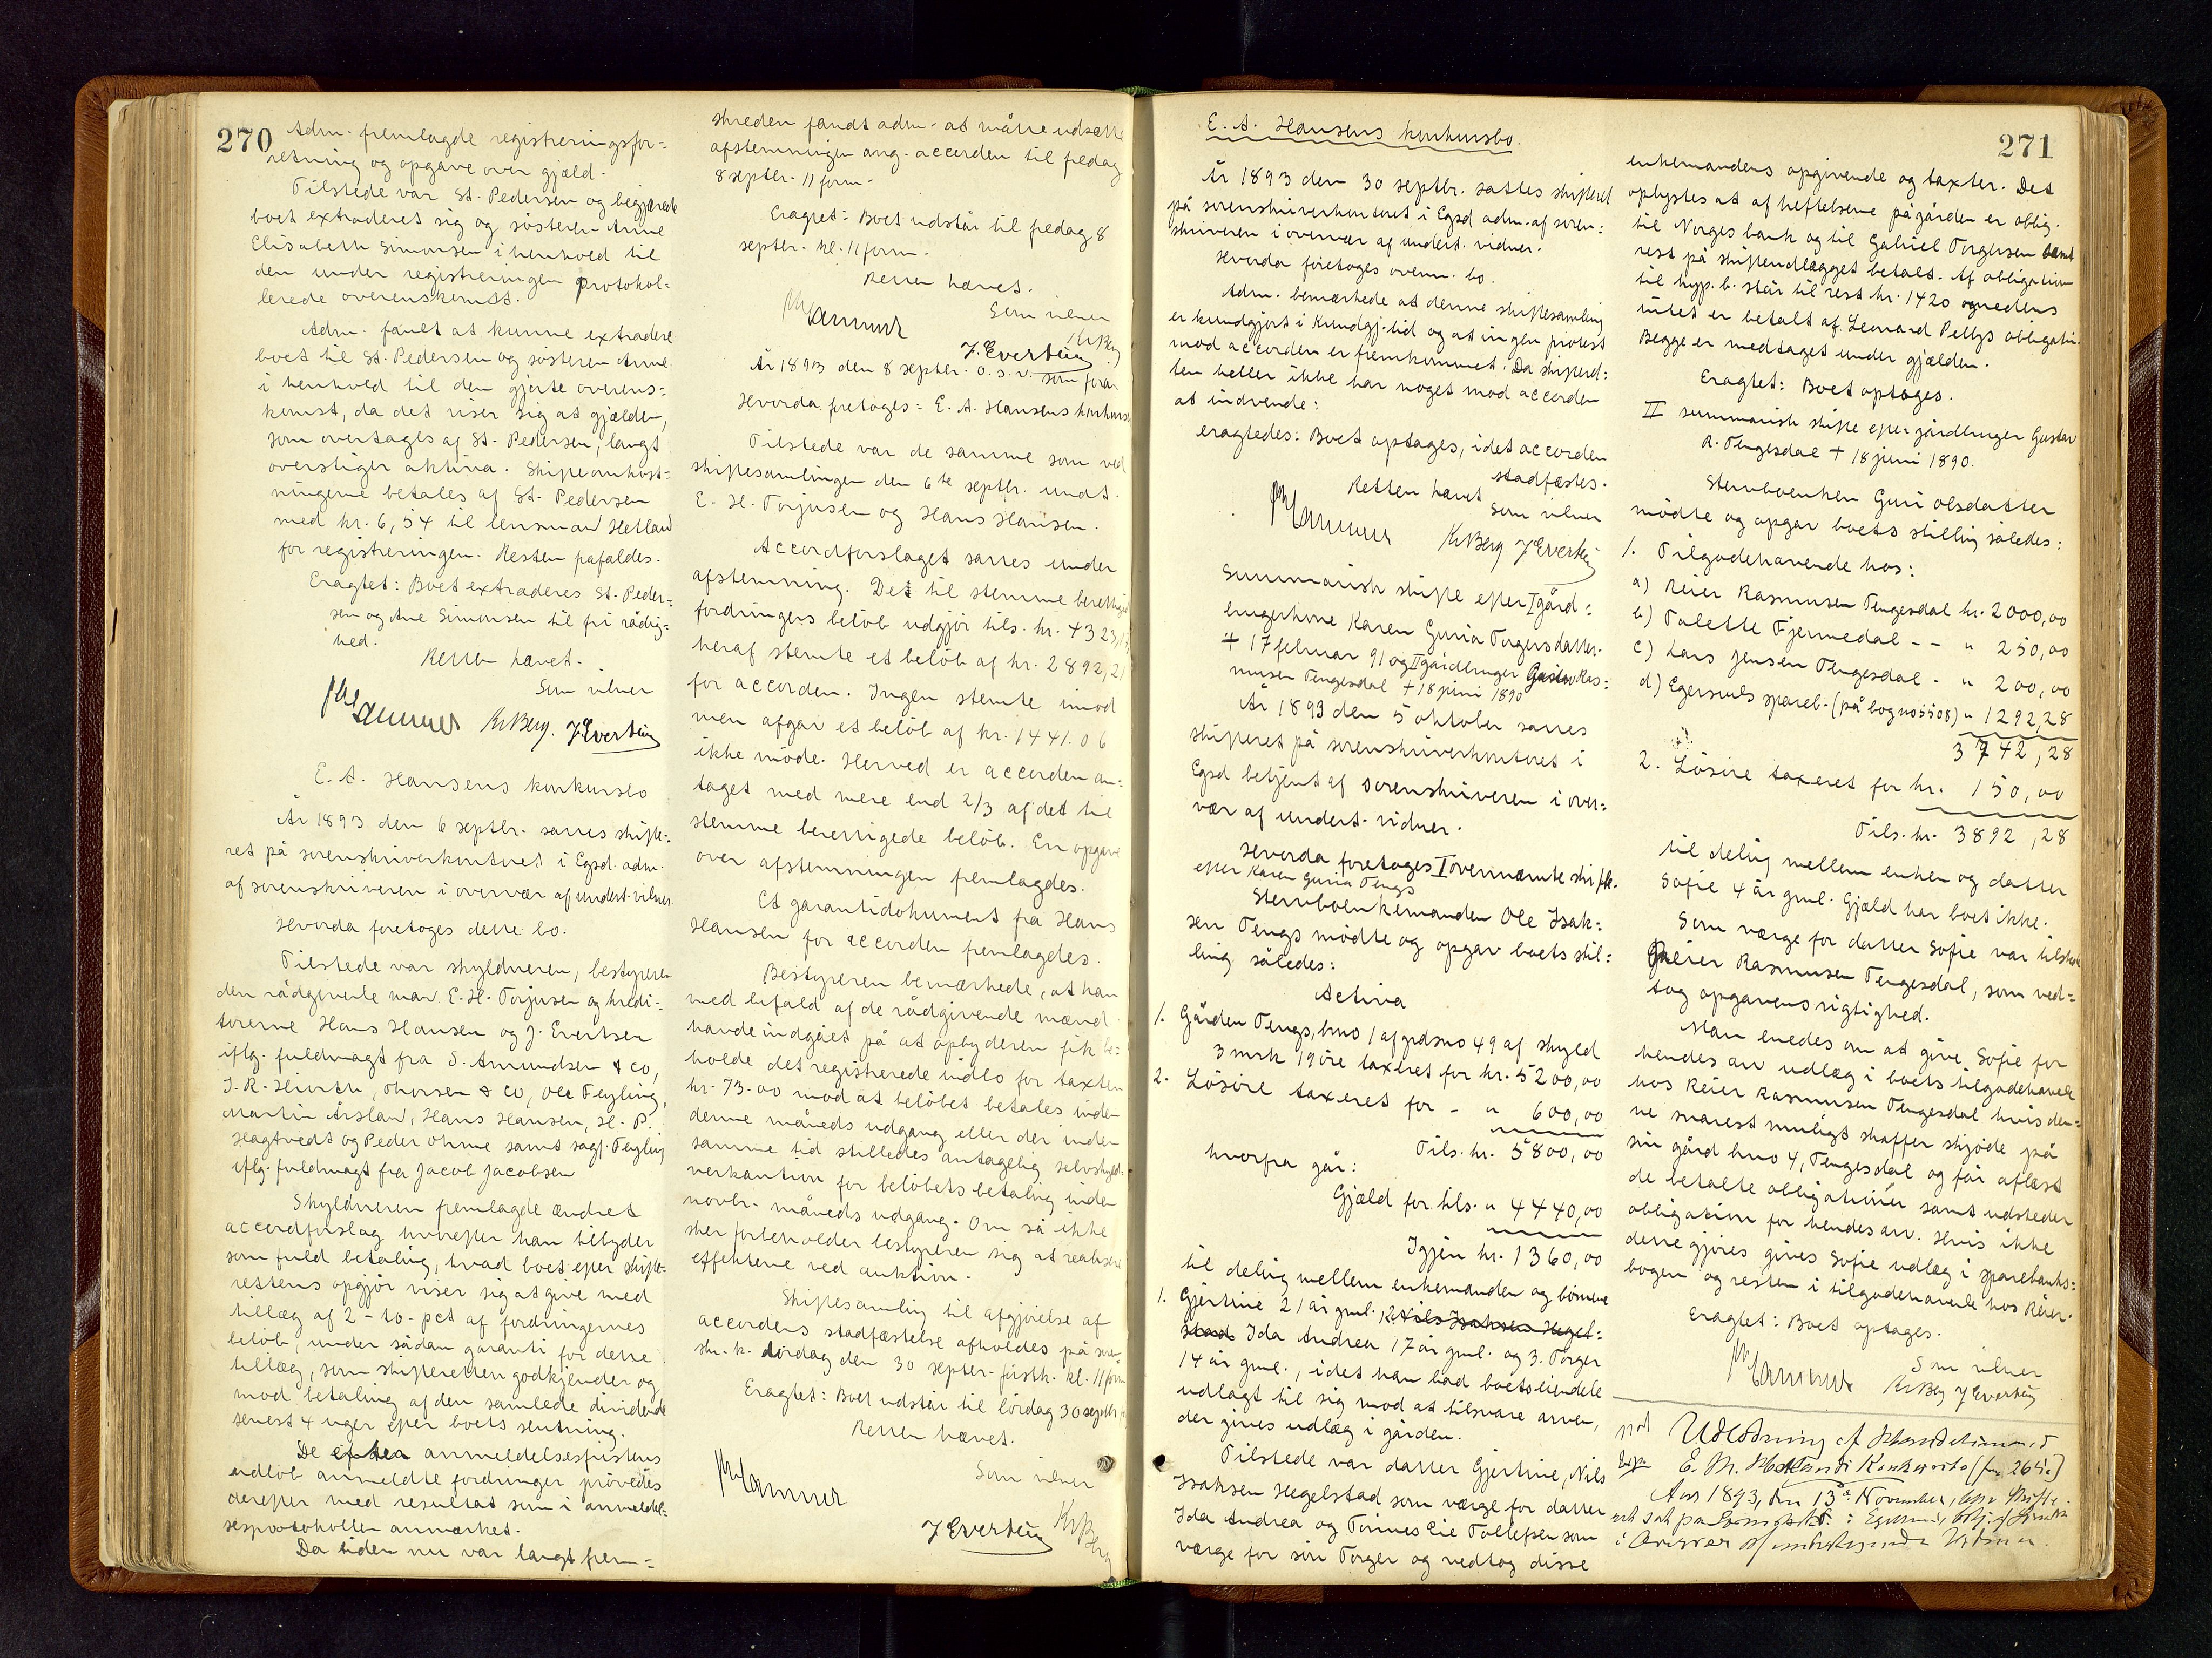 270
Adm. fremlagde registreringsfor=
retning og opgave over gjæld.
Tilstede var St. Pedersen og begjærede
boet extraderet sig og søsteren Anne
Elisabeth Simonsen i henhold til
den under registreringen protokol=
lerede overenskomst.
Adm. fandt at kunne extradere
boet til St. Pedersen og søsteren Anne
i henhold til den gjorte overens=
komst, da det viser sig at gjælden,
som overtages af St. Pedersen, langt
overstiger aktiva. Skifteomkost=
ningerne betales af St. Pedersen
med kr. 6,54 til lensmand Hetland
for registreringen. Resten pafaldes.
Eragtet: Boet extraderes St. Peder=
sen og Ane Simonsen til fri rådig=
hed.
Retten hævet.
Som vidner
Kr Berg. J Evertsen
E. A. Hansens konkursbo
År 1893 den 6 septbr. sattes skifte=
ret på sorenskriverkontoret i Egsd adm.
af sorenskriveren i overvær af undert. vidner.
Hvorda foretoges dette bo.
Tilstede var skyldneren, bestyreren
den rådgivende mand E. H. Torjusen og kredi=
torerne Hans Hansen og J. Evertsen
iflg. fuldmagt fra S. Amundsen & Co,
J. R. Hiorth, Thorsen & Co, Ole Feyling,
Martin Årsland, Hans Hansen, H. P.
Hagtvedt og Peder Ohme samt sagf. Feyling
iflg. fuldmagt fra Jacob Jacobsen
Skyldneren fremlagde ændret
accordforslag hvorefter han tilbyder
som fuld betaling, hvad boet efter skifte=
rettens opgjør viser sig at give med
tillæg af 2 - to - pct af fordringernes
beløb, under sådan garanti for dette
tillæg, som skifteretten godkjender og
mod betaling af den samlede dividende
senest 4 uger efter boets slutning.
De efter anmeldelsesfristens
udløb anmeldte fordringer prøvedes
derefter med resultat som i anmeldel=
sesprotokollen anmærket.
Da tiden nu var langt frem=
skreden fandt adm. at måtte udsætte
afstemningen ang. accorden til fredag
8 septbr. 11 form.
Eragtet: Boet udstår til fredag 8
septbr. kl. 11 form.
Retten hævet.
Som vidner
Kr Berg
J. Evertsen
År 1893 den 8 septbr. o. s. v. som forån
Hvorda foretoges: E. A. Hansens konkursbo
Tilstede var de samme som ved
skiftesamlingen den 6te septbr. undt.
E. H. Torjusen og Hans Hansen.
Accordforslaget sattes under
afstemning. Det til stemme berettiged
fordringers beløb udgjør tils. kr. 4323,
heraf stemte et beløb af kr. 2892,21
for accorden. Ingen stemte imod
men afgav et beløb af kr. 1441.06
ikke møde. Herved er accorden an=
taget med mere end 2/3 af det til
stemme berettigede beløb. En opgave
over afstemningen fremlagdes.
Et garantidokument fra Hans
Hansen for accorden fremlagdes.
Bestyreren bemærkede, at han
med bifald af de rådgivende mænd
havde indgået på at opbyderen fik be=
holde det registrerede indbo for taxten
kr. 73.00 mod at beløbet betales inden
denne måneds udgang eller der inden
samme tid stilledes antagelig selvskyld=
nerkaution for beløbets betaling inden
novbr. måneds udgang. Om så ikke
sker forbeholder bestyreren sig at realisere
effekterne ved auktion.
Skiftesamling til afgjørelse af
accordens stadfæstelse afholdes på soren
skr. k. lørdag den 30 septbr. førstk. kl. 11 form
Eragtet: Boet udstår til lørdag 30 septbr
Retten hævet.
Som vidner
Kr Berg
J Evertsen
271
E. A. Hansens konkursbo.
År 1893 den 30 septbr. sattes skifteret
på sorenskriverkontoret i Egsd adm. af soren=
skriveren i overvær af undert. vidner.
Hvorda foretoges ovenn. bo.
Adm. bemærkede at denne skiftesamling
er kundgjort i Kundgj.tid og at ingen protest
mod accorden er fremkommet. Da skifteret=
ten heller ikke har noget mod accorden
at indvende:
eragtedes: Boet optages, idet accorden
stadfæstes.
Retten hævet
Som vidner
Kr Berg J Evertsen
Summarisk skifte efter I gård=
brugerkone Karen Guria Torgersdatter
+ 17 februar 91 og II gårdbruger Gustav Ras=
musen Tengesdal + 18 juni 1890
År 1893 den 5 oktober sattes
skifteret på sorenskriverkontoret i
Egsd betjent af sorenskriveren i over=
vær af undert. vidner.
Hvorda foretoges I ovennævnte skifte
efter Karen Guria Tengs
Sterboenkemanden Ole Isak=
sen Tengs mødte og opgav boets stil=
ling således:
Activa
1. Gården Tengs, bno 1 af grdsno 49 af skyld
3 mrk 19 øre taxeret for kr. 5200,00
2. Løsøre taxeret for - " 600,00
Tils. kr. 5800,00
hvorfra går:
Gjæld for tils. " 4440,00
Igjen kr. 1360,00
til deling mellem enkemanden og børnene
1. Gjertine 21 år gml., 2. Nils Isaksen Hegel=
stad Ida Andrea 17 år gml. og 3. Torger
14 år gml., idet han bad boets eiendele
udlagt til sig mod at tilsvare arven,
der gives udlæg i gården.
Tilstede var datter Gjertine, Nils
Isaksen Hegelstad som værge for datter
Ida Andrea og Tønnes Eie Tollefsen som
værge for søn Torger og vedtog disse
enkemandens opgivende og taxter. Det
oplystes at af heftelserne på gården er oblig.
til Norges bank og til Gabriel Torgersen samt
rest på skifteudlægget betalt. Af obligation
til hyp. b. står til rest kr. 1420 og medens
intet er betalt af Leonard Pettys obligation.
Begge er medtaget under gjælden.
Eragtet: Boet optages.
II summarisk skifte efter gårdbruger Gustav
R. Tengesdal + 18 juni 1890.
Sterboenken Guri Olsdatter
mødte og opgav boets stilling således:
1. Tilgodehavende hos:
a) Reier Rasmusen Tengesdal kr. 2000,00
b) Tolette Fjermedal - - " 250,00
c) Lars Jensen Tengesdal - " 200,00
d) Egersunds spareb. (på bog no 5508) " 1292,28
3742,28
2. Løsøre taxeret for kr. 150,00
Tils. kr. 3892,28
til deling mellem enken og datter
Sofie 4 år gml. Gjæld har boet ikke.
Som værge for datter Sofie var tilstede
Reier Rasmusen Tengesdal, som ved=
tog opgavens rigtighed.
Man enedes om at give Sofie for
hendes arv udlæg i boets tilgodehaven=
de hos Reier Rasmusen Tengesdal hvis den=
ne snarest muligt skaffer skjøde på
sin gård bno 4, Tengesdal og får aflæst
de betalte obligationer samt udsteder
obligation for hendes arv. Hvis ikke
dette gjøres gives Sofie udlæg i sparebanks=
bogen og resten i tilgodehavende hos Reier.
Eragtet: Boet optages.
Som vidner
Kr Berg J Evertsen
Udlodning af
E. M. Konkursbo (fra 264)
Aar 1893, den 13de November, blev Skifte
ret sat paa i Egersund, betj. af
i Overvær af undertegnede Vidner.